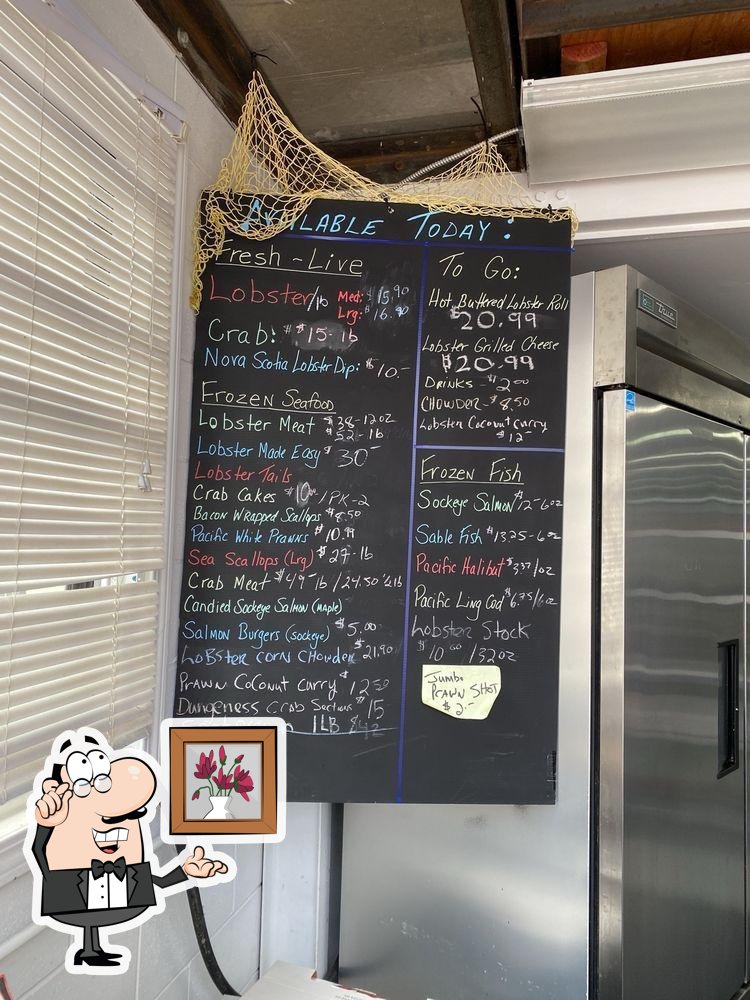 AVAILABLE TODAY:
Fresh ~ Live
Lobster/lb Med: $15.90
Lrg: $16.90
Crab: $15- lb
Nova Scotia Lobster Dip: $10.-
Frozen Seafood
Lobster Meat $38-12oz
$52- lb
Lobster Made Easy $30-
Lobster Tails
Crab Cakes $10 /1PK-2
Bacon Wrapped Scallops $8.50
Pacific White Prawns $10.99
Sea Scallops (Lrg) $27- lb
Crab Meat $49- lb / 24.50 ½ lb
Candied Sockeye Salmon (maple)
Salmon Burgers (sockeye) $5.00
Lobster Corn Chowder $21.90
Prawn Coconut Curry $12.50
Dungeness Crab Sections $15
1LB $42
To Go:
Hot Buttered Lobster Roll
$20.99
Lobster Grilled Cheese
$20.99
Drinks - $2.00
Chowder - $8.50
Lobster Coconut Curry
$12-
Frozen Fish
Sockeye Salmon $12-6oz
Sable Fish $13.25-6oz
Pacific Halibut
Pacific Ling Cod $6.75/6oz
Lobster Stock
$10.00 /32oz
Jumbo
Prawn Shot
$2.-
true